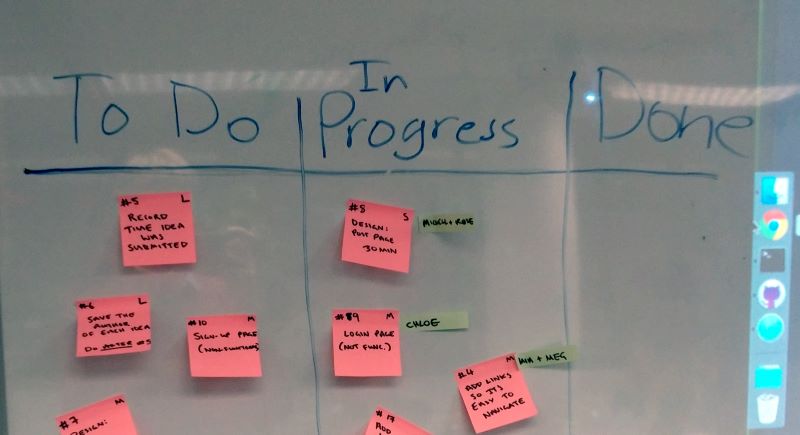 To Do
In
Progress
Done
#5 L
RECORD
TIME IDEA
WAS
SUBMITTED
#6 L
SAVE THE
AUTHOR
OF EACH IDEA
DO AFTER #5
#10 M
SIGN-UP PAGE
(NON-FUNCTIONAL)
#7 M
DESIGN:
#8 S
DESIGN:
POST PAGE
30MIN
#9 M
LOGIN PAGE
(NOT FUNC.)
CHLOE
#4 M
ADD LINKS
SO ITS
EASY TO
NAVIGATE
+ MEG
#17
ADD